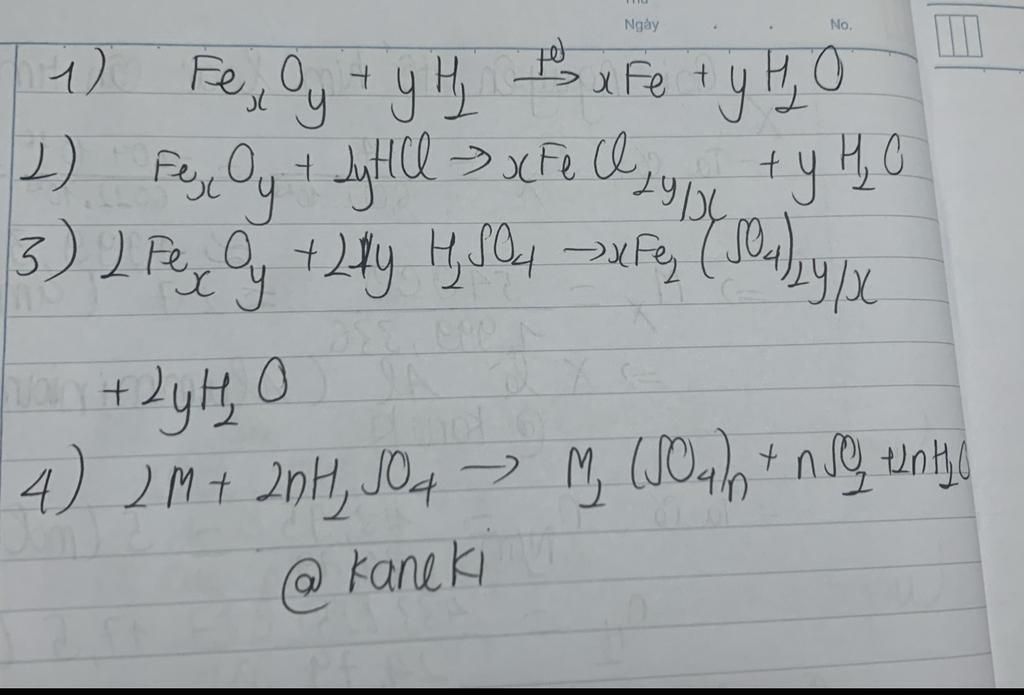 Ngày . . No.
1) FeₓOy + yH₂ →(t⁰) xFe + yH₂O
2) FeₓOy + 2yHCl → xFeCl₂y/ₓ + yH₂O
3) 2FeₓOy + 2y H₂SO₄ → xFe₂(SO₄)₂y/ₓ
+ 2yH₂O
4) 2M + 2nH₂SO₄ → M₂(SO₄)n + nSO₂ + 2nH₂O
@kaneki